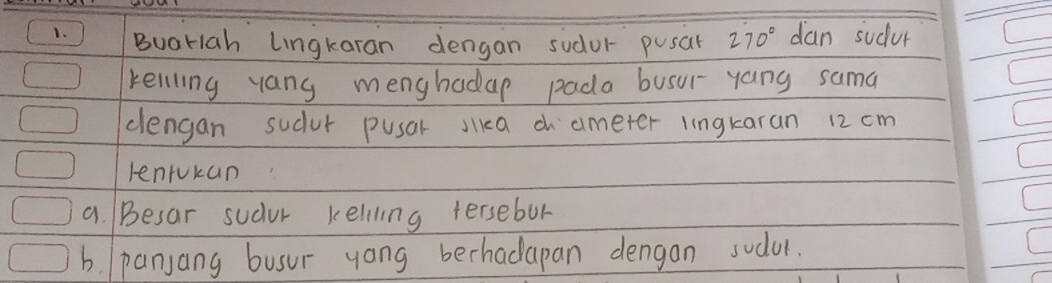 1. Buatlah lingkaran dengan sudut pusat 270° dan sudut
keliling yang menghadap pada busur yang sama
dengan sudut pusat jika diameter lingkaran 12 cm
tentukan :
a. Besar sudut keliling tersebut
b. panjang busur yang berhadapan dengan sudut.